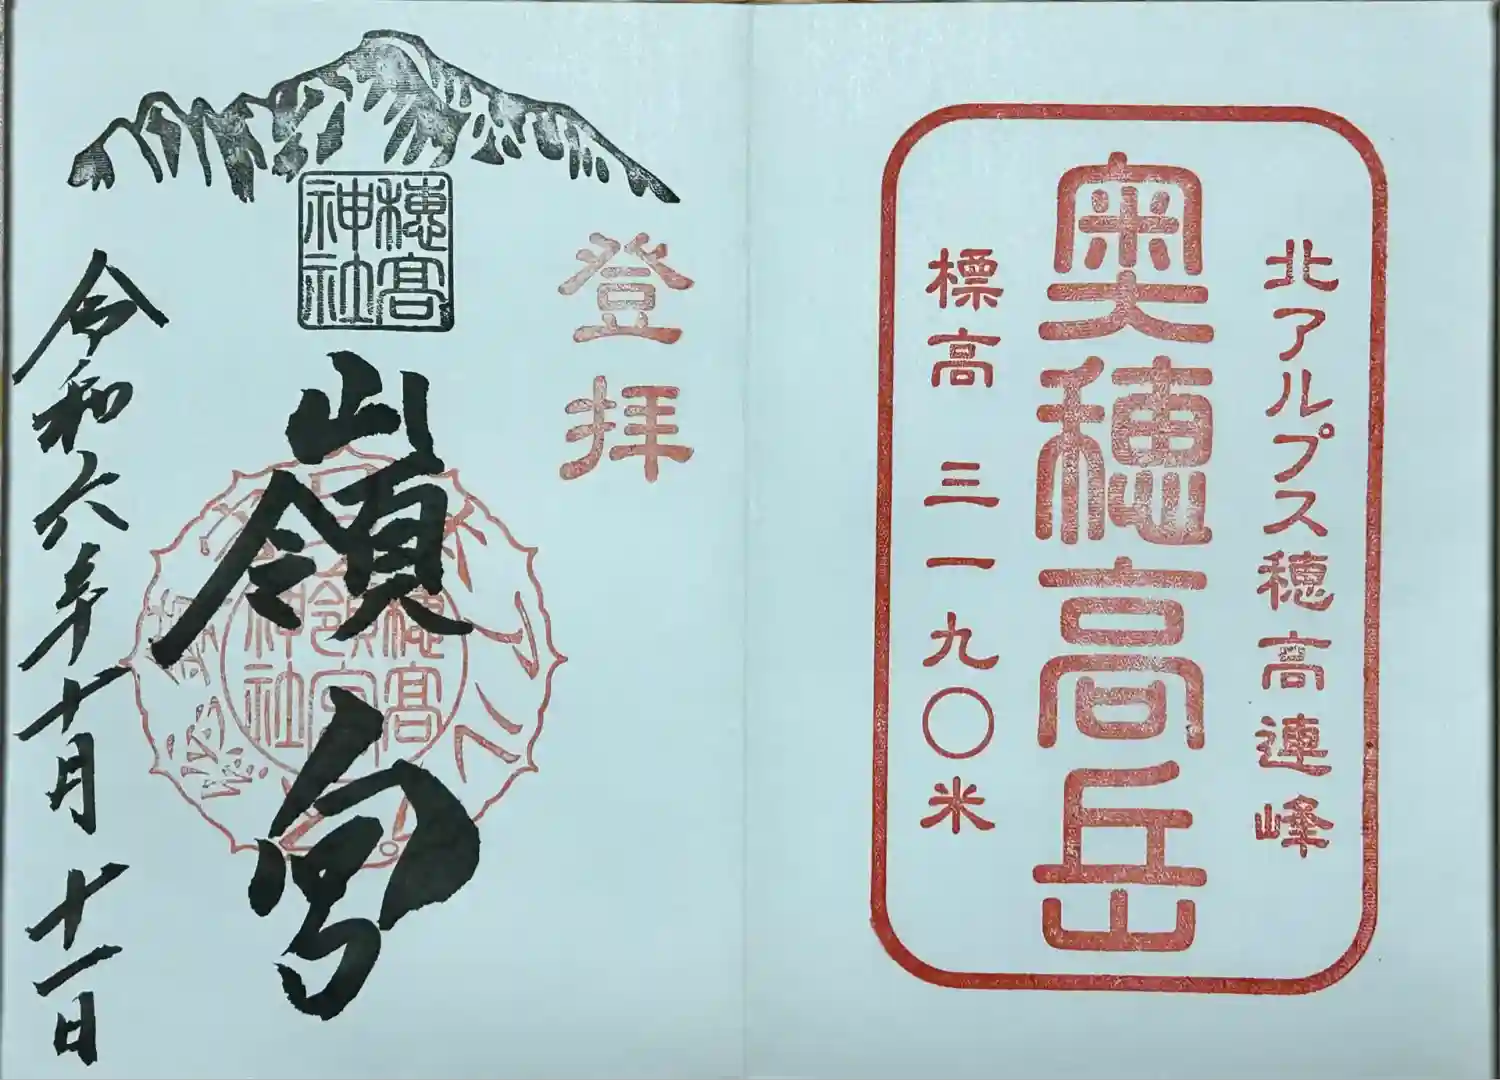 北アルプス穂高連峰
奥穂高岳
標高 三一九〇米
登拝
穂高
神社
嶺宮
穂高
嶺宮
神社
令和六年十月十一日